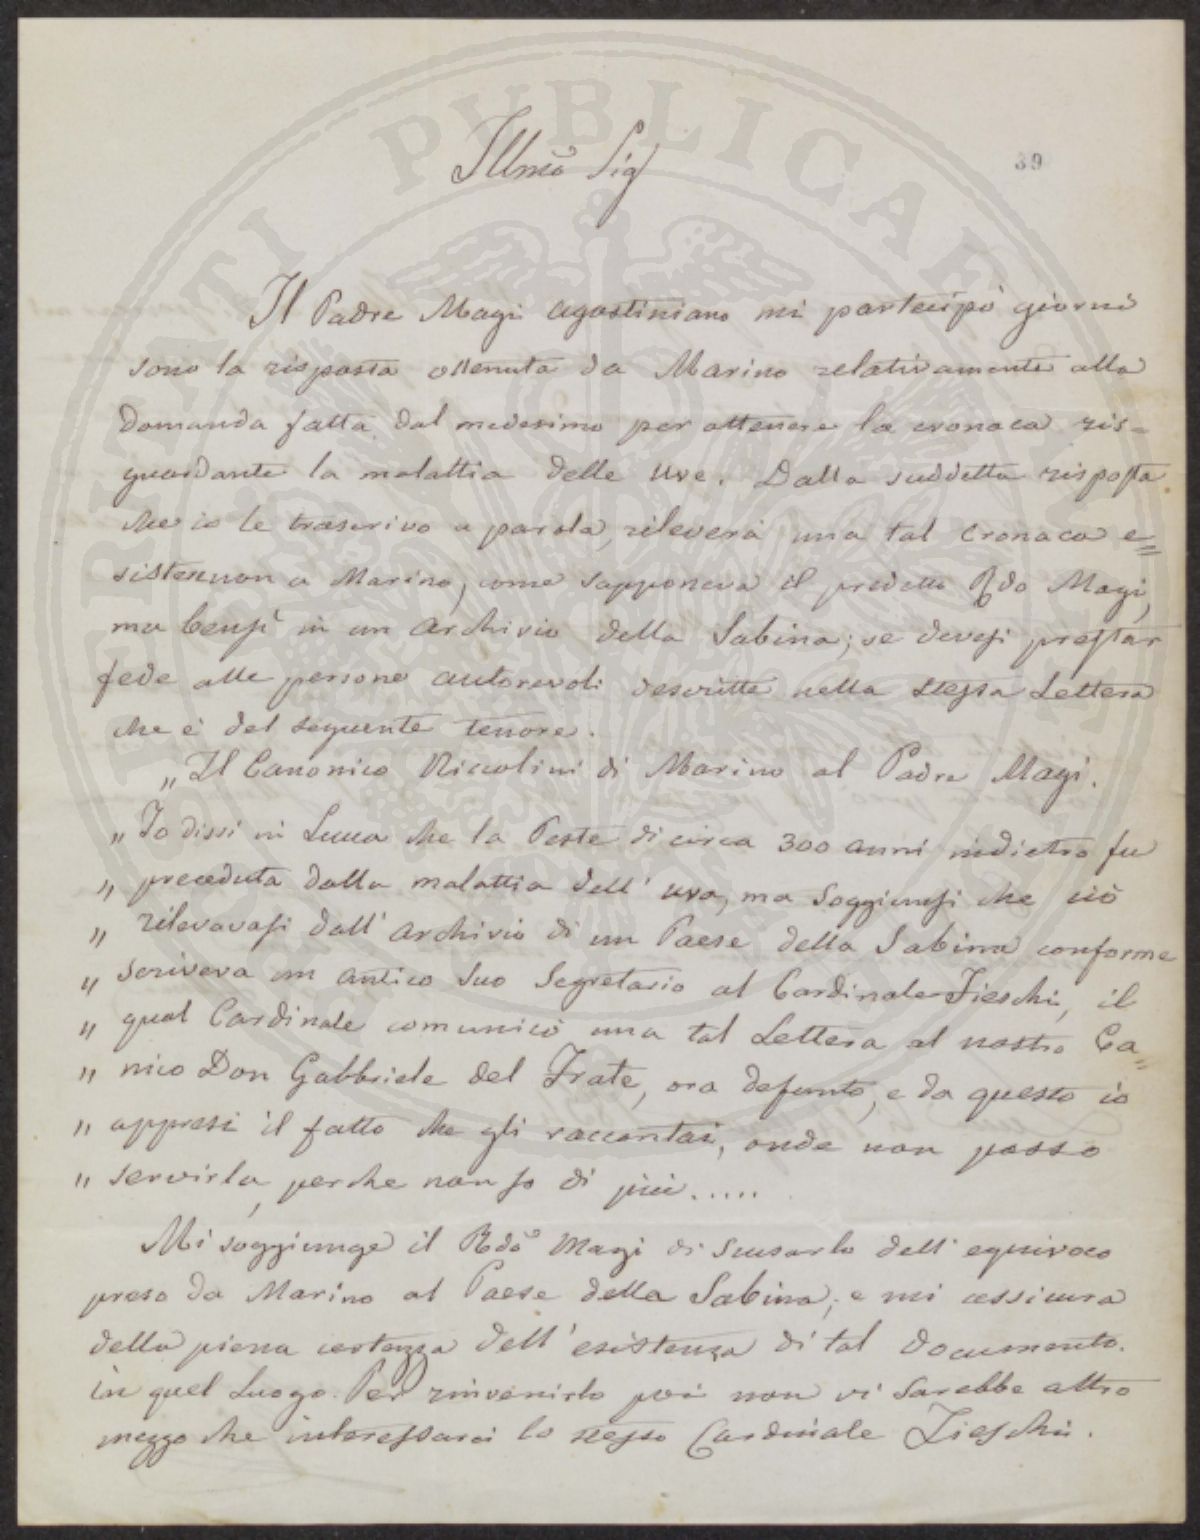 39
Illmo Sig
Il Padre Magi Agostiniano mi partecipò giorni
sono la risposta ottenuta da Marino relativamente alla
domanda fatta dal medesimo per ottenere la cronaca ris=
guardante la malattia delle Uve. Dalla suddetta risposta
che io le trascrivo a parola, rileverà una tal Cronaca e=
sistere non a Marino, come supponeva il predetto Rdo Magi,
ma bensì in un Archivio della Sabina; se devesi prestar
fede alle persone autorevoli descritte nella stessa Lettera
che è del seguente tenore.
„ Il Canonico Niccolini di Marino al Padre Magi.
„ Io dissi in Lucca che la Peste di circa 300 anni indietro fu
„ preceduta dalla malattia dell' uva, ma soggiunsi che ciò
„ rilevavasi dall' Archivio di un Paese della Sabina conforme
„ scriveva un antico suo Segretario al Cardinale Fieschi, il
„ qual Cardinale comunicò una tal Lettera al nostro Ca=
„ nico Don Gabbriele del Frate, ora defunto, e da questo io
„ appresi il fatto che gli raccontai, onde non posso
„ servirla, perche non so di più.....
Mi soggiunge il Rdo Magi di scusarlo dell' equivoco
preso da Marino al Paese della Sabina; e mi assicura
della piena certezza dell' esistenza di tal documento.
in quel Luogo. Per rinvenirlo poi non vi sarebbe altro
mezzo che interessarci lo stesso Cardinale Fieschi.